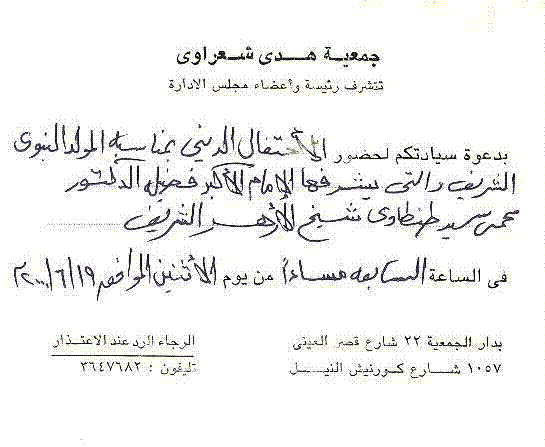 جمعية هدى شعراوى
تتشرف رئيسة وأعضاء مجلس الادارة
بدعوة سيادتكم لحضور الاحتفال الدينى بمناسبة المولد النبوى
الشريف والتى يشرفها الإمام الأكبر فضيلة الدكتور
محمد سيد طنطاوى شيخ الأزهر الشريف
فى الساعة السابعة مساءاً من يوم الأثنين الموافق ٢٠٠٠/٦/١٩م
بدار الجمعية ٢٢ شارع قصر العينى
١٠٥٧ شارع كورنيش النيل
الرجاء الرد عند الاعتذار
تليفون : ٣٦٤٧٦٨٢